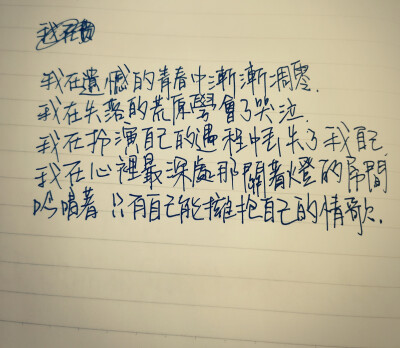 我在遺憾的青春中漸漸凋零.
我在失落的荒原學會了哭泣.
我在扮演自己的過程中丟失了我自己.
我在心裡最深處那關著燈的房間
吟唱著 只有自己能擁抱自己的情歌.